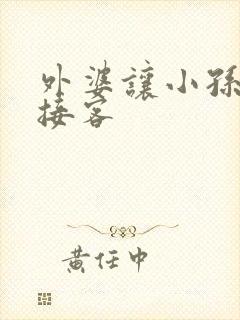 外婆讓小孫
接客
黃任中